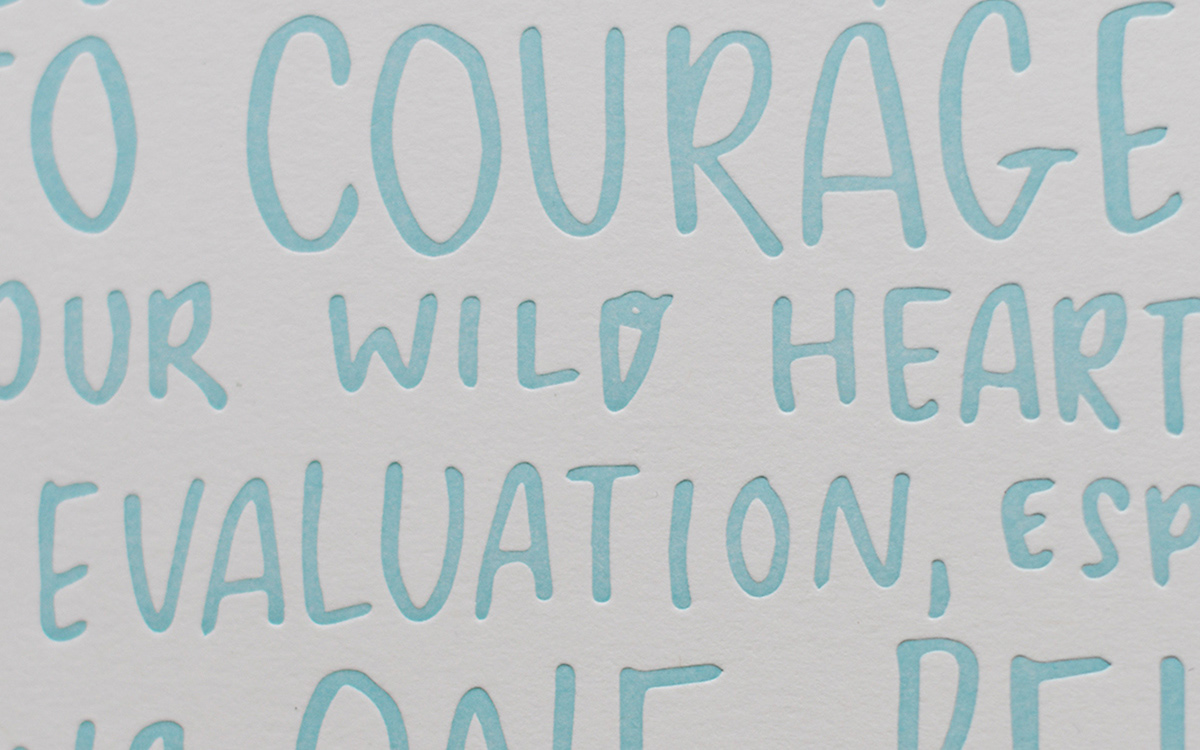 TO COURAGE
OUR WILD HEART
EVALUATION, ESP
ONE